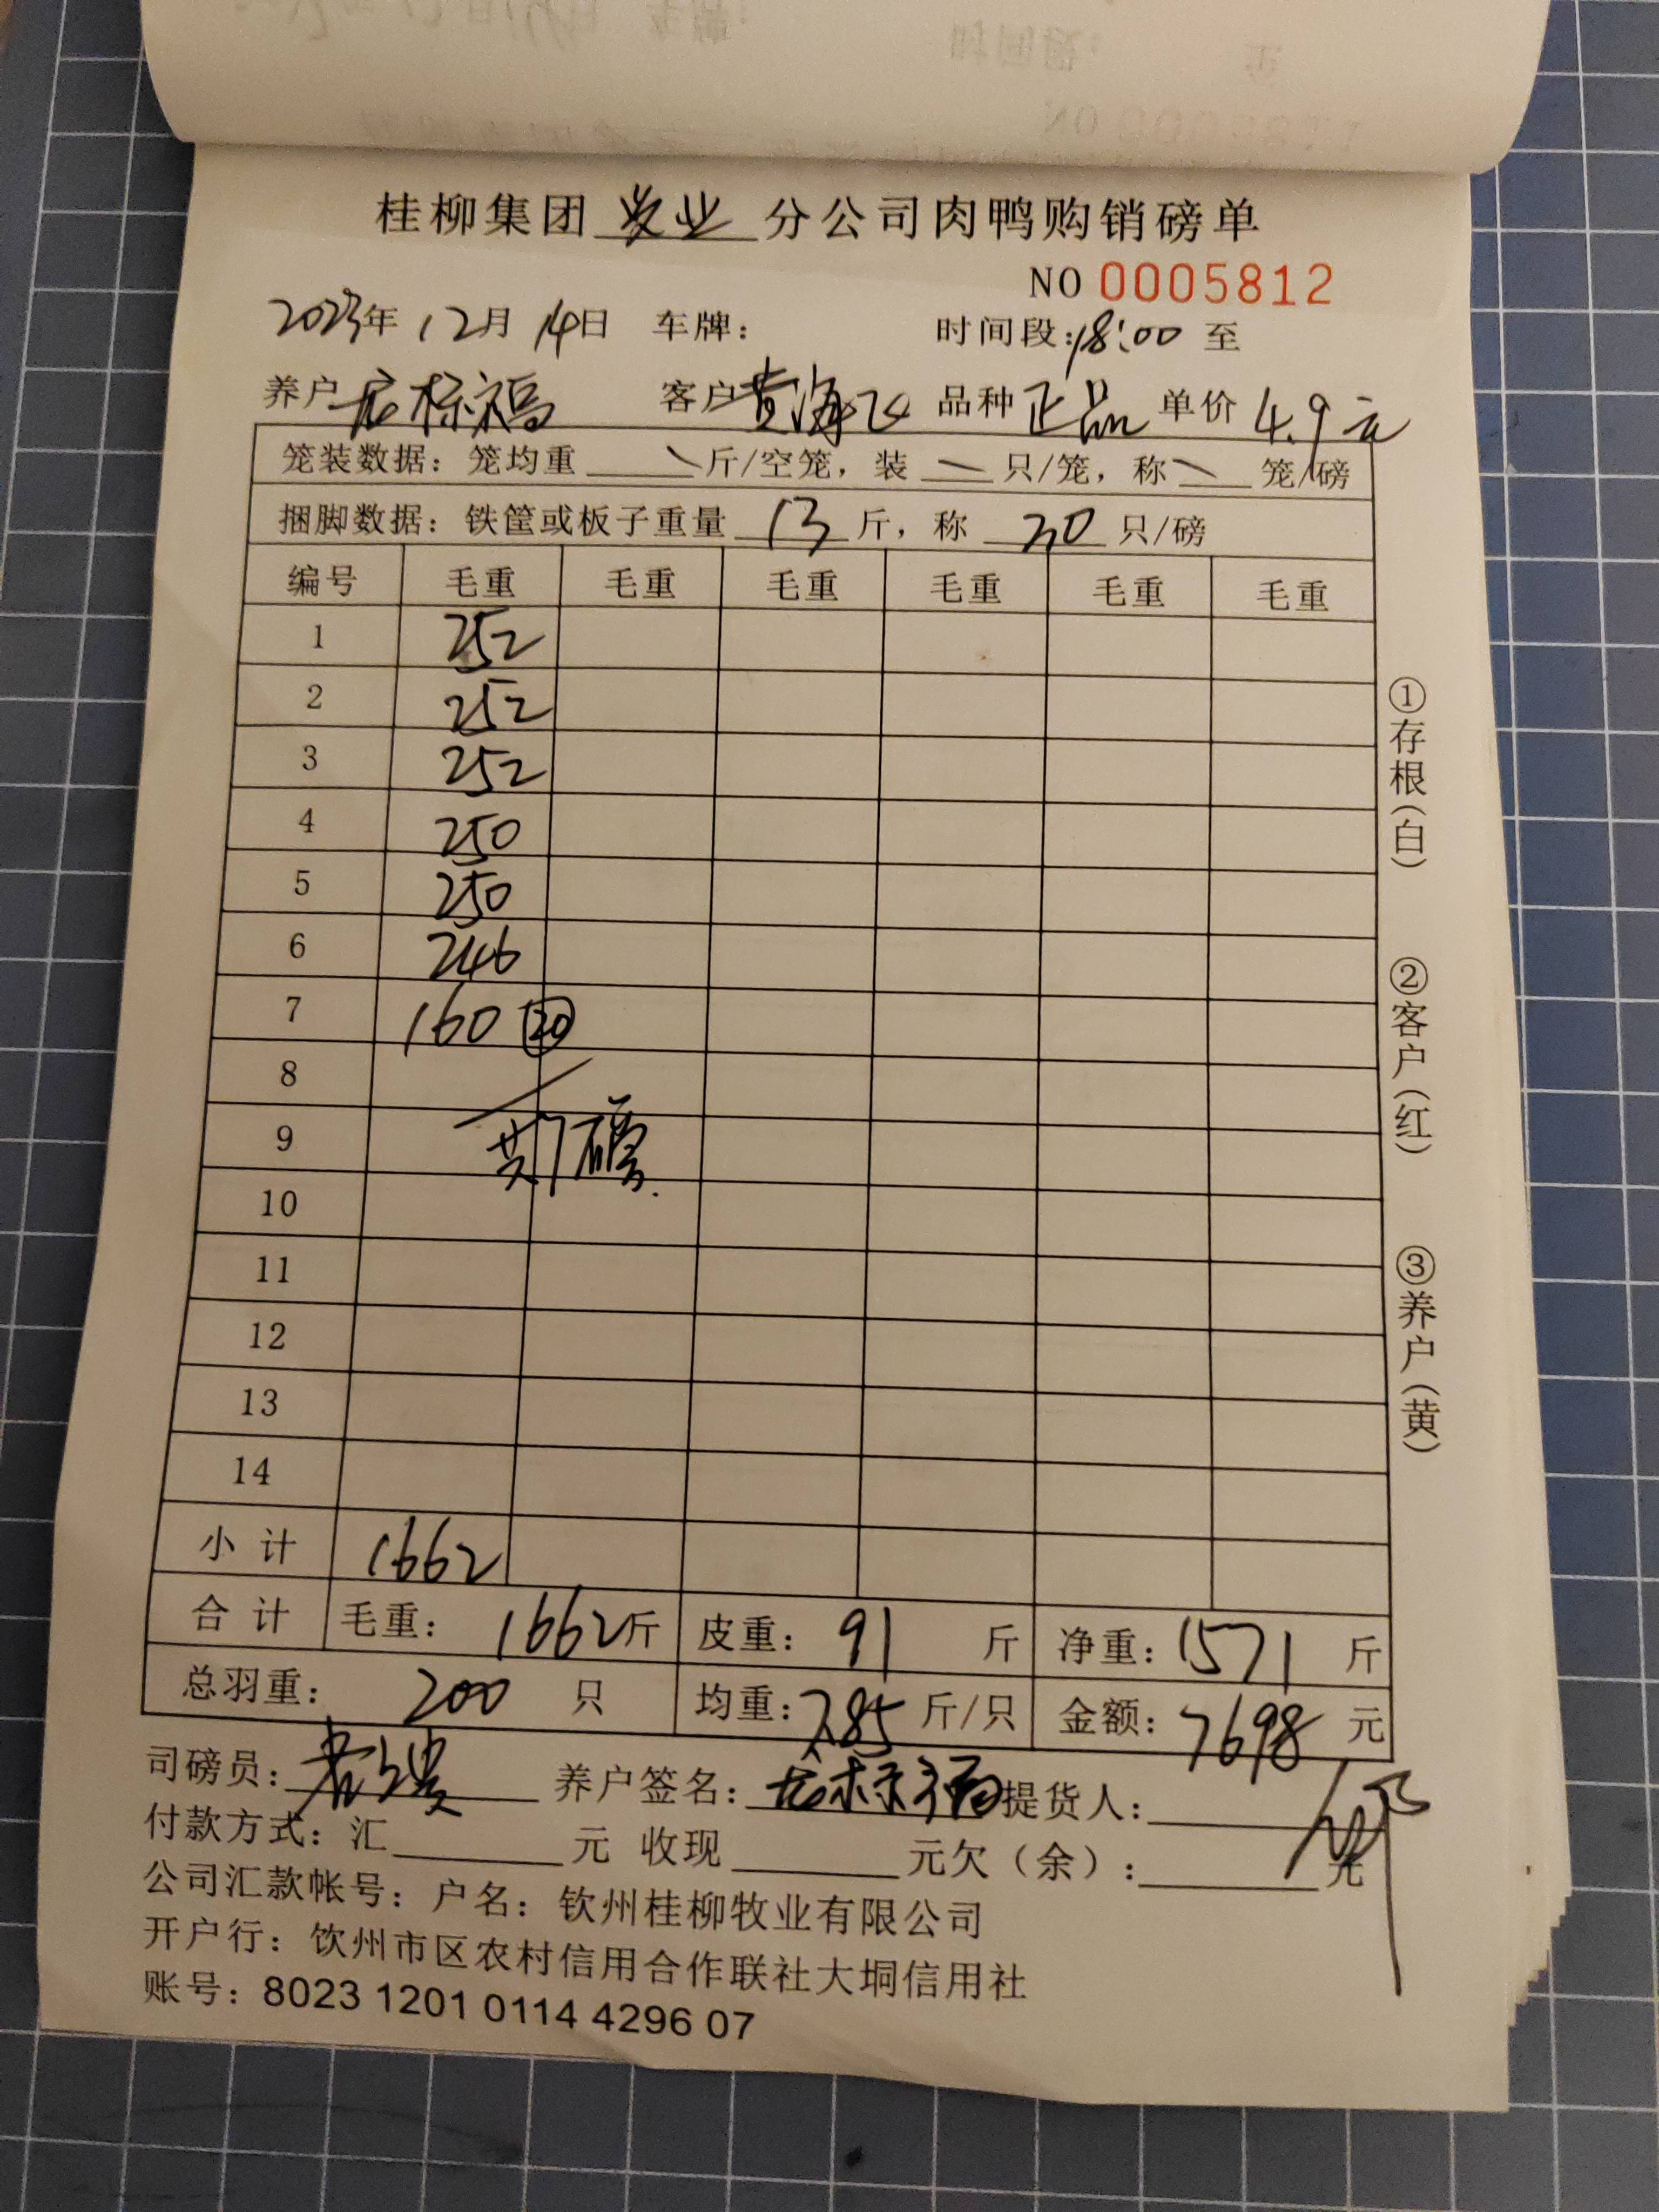 桂柳集团 农业 分公司肉鸭购销磅单
NO 0005812
2023年 12月 14日 车牌: 时间段:18:00 至
养户 标福 客户 黄海飞 品种 正品 单价 4.9元
笼装数据: 笼均重 斤/空笼, 装 只/笼, 称 笼/磅
捆脚数据: 铁筐或板子重量 13 斤, 称 30 只/磅
编号 毛重 毛重 毛重 毛重 毛重 毛重
1 252
2 252
3 252
4 250
5 250
6 246
7 160 20
8
9 共7磅.
10
11
12
13
14
小计 1662
合计 毛重: 1662斤 皮重: 91 斤 净重: 1571 斤
总羽重: 200 只 均重: 7.85 斤/只 金额: 7698 元
司磅员: 养户签名: 标福 提货人:
付款方式: 汇 元 收现 元欠(余): 元
公司汇款帐号: 户名: 钦州桂柳牧业有限公司
开户行: 饮州市区农村信用合作联社大垌信用社
账号: 8023 1201 0114 4296 07
①存根(白) ②客户(红) ③养户(黄)